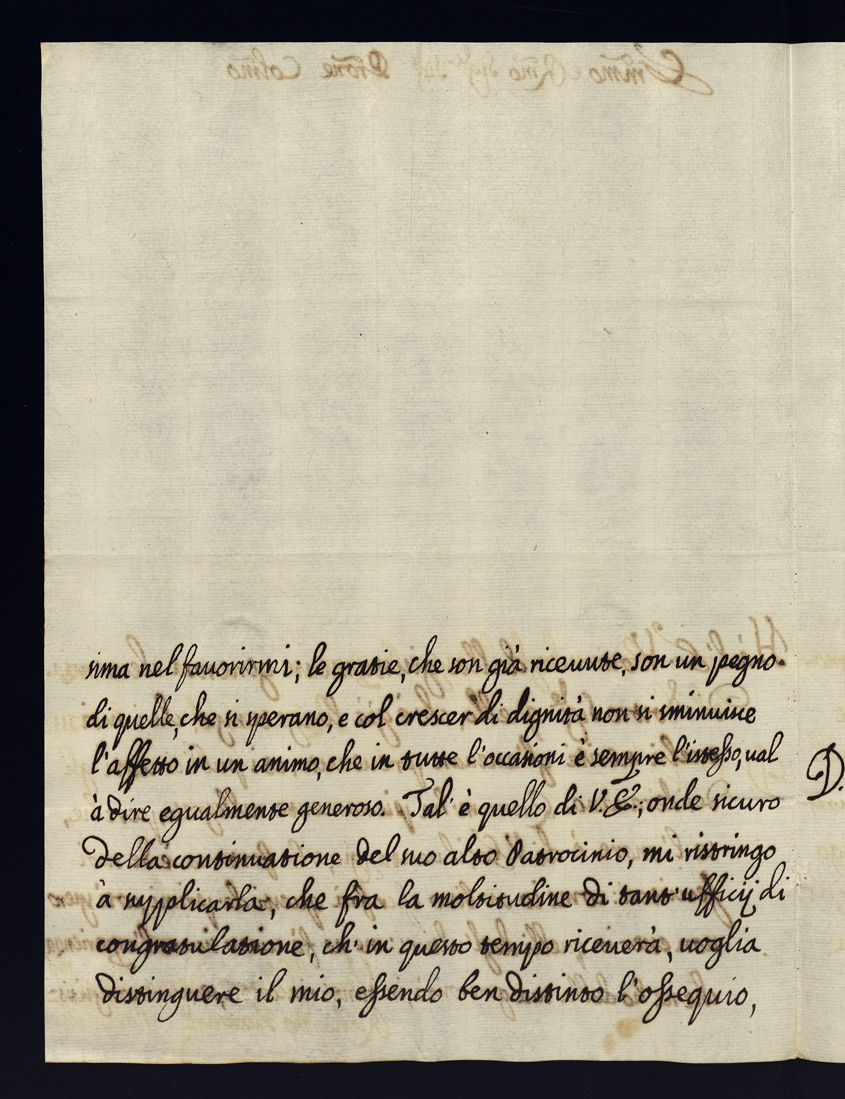 sima nel fauorirmi; le gratie, che son già riceuute, son un pegno
di quelle, che si sperano, e col crescer di dignità non si sminuisce
l'affetto in un animo, che in tutte l'occasioni è sempre l'istesso, ual
à dire egualmente generoso. Tal' è quello di V. E.; onde sicuro
della continuatione del suo alto Patrocinio, mi ristringo
à supplicarla, che frà la moltitudine di tant' ufficij di
congratulatione, ch' in questo tempo riceuerà, uoglia
distinguere il mio, essendo ben distinto l'ossequio,
D.